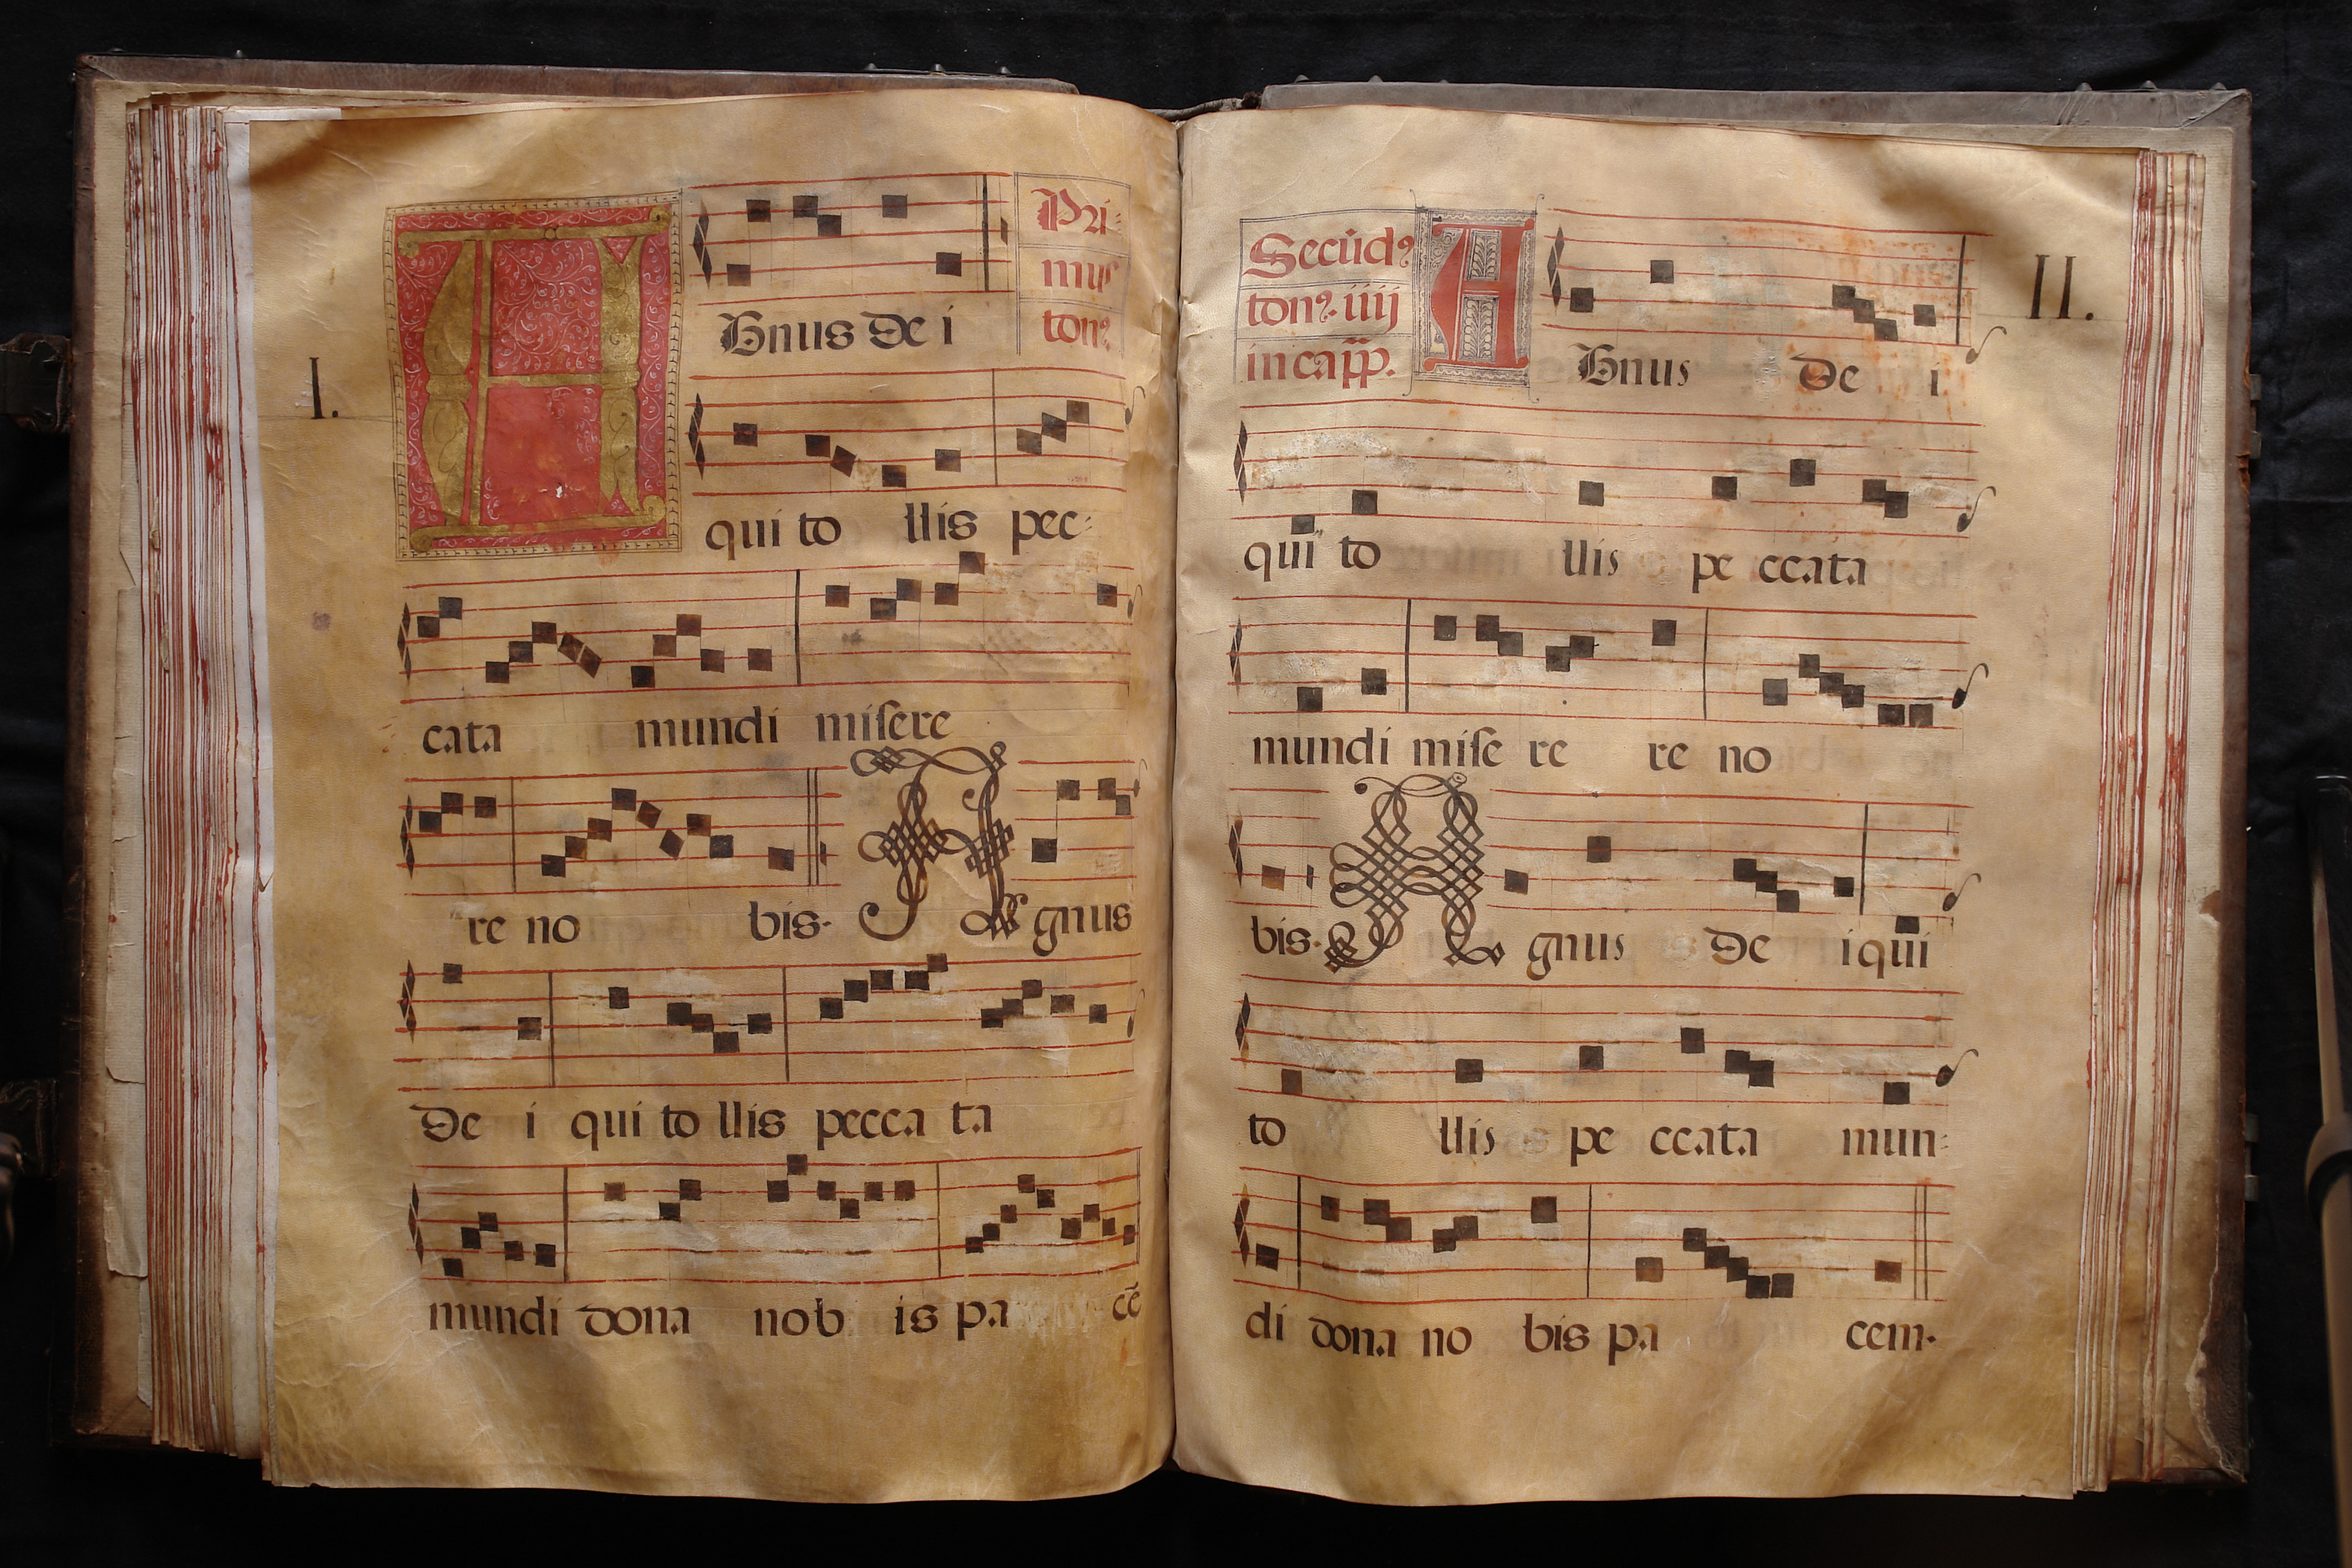 I.
Pri-
mus
tonꝰ.
AGnus De i
qui to llis pec-
cata mundi miſere
re no bis. Agnus
De i qui to llis pecca ta
mundi dona nob is pa cē
II.
Secūdꝰ
tonꝰ. iiij
in capp.
AGnus De i
qui to llis pe ccata
mundi miſe re re no
bis. Agnus De i qui
to llis pe ccata mun-
di dona no bis pa cem.